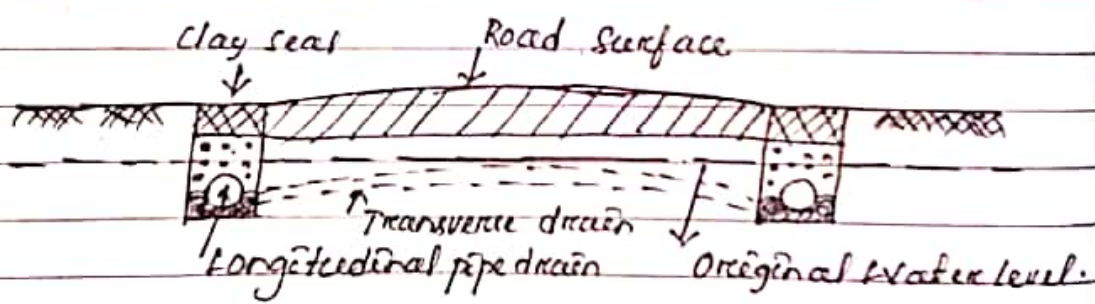 Clay seal
Road Surface
Transverse drain
Longitudinal pipe drain
Original Water level.